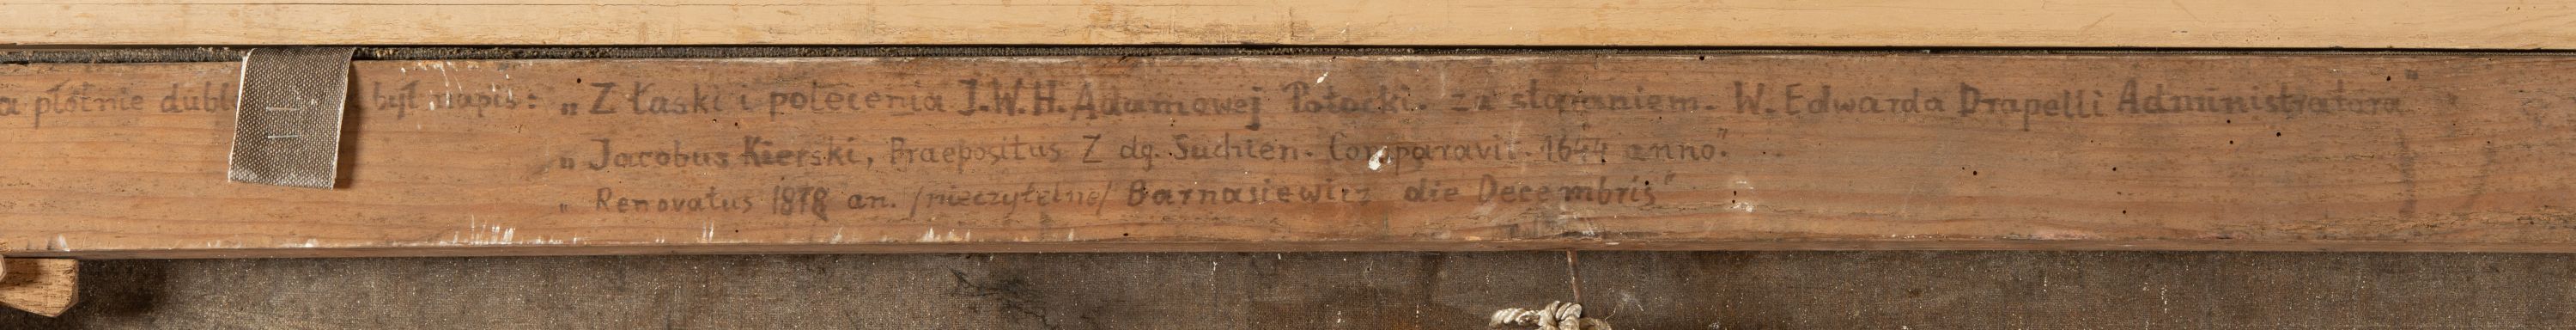 a płótnie dubl był napis: „Z Łaski i polecenia J.W.H. Adamowej Potocki. za staraniem. W. Edwarda Drapelli Administratora"
„Jacobus Kierski, Praepositus Z dg. Suchien. Comparavit. 1644 anno."
„Renovatus 1878 an. /nieczytelne/ Barnasiewicz die Decembris"